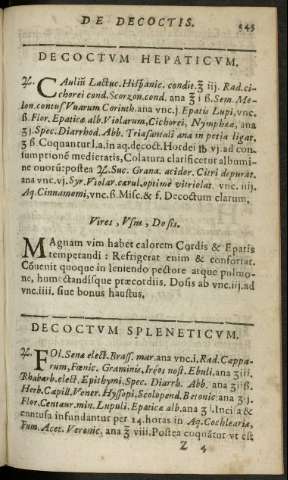 DE DECOCTIS.
545
DECOCTVM HEPATICVM.
℞. CAuliũ Lactuc. Hispanic. condit. ʒ iij. Rad. ci-
chorei cond. Scorzon. cond. ana ʒ j ß. Sem. Me-
lon. contus Vuarum Corinth. ana vnc. j. Epatis Lupi, vnc.
ß. Flor. Epaticæ alb. Violarum, Cichorei, Nympheæ, ana
ʒ j. Spec. Diarrhod. Abb. Triasantali ana in petia ligat.
ʒ ß. Coquantur l. a. in aq. decoct. Hordei lb vj. ad con-
sumptionẽ medietatis, Colatura clarificetur albumi-
ne ouorũ: postea ℞. Suc. Granat. acidor. Citri depurat.
ana vnc. vj. Syr. Violar. cærul. optimè vitriolat. vnc. iiij.
Aq. Cinnamomi, vnc. ß. Misc. & f. Decoctum clarum.
Vires, Vsus, Dosis.
MAgnam vim habet calorem Cordis & Epatis
temperandi: Refrigerat enim & confortat.
Cõuenit quoque in leniendo pectore atque pulmo-
ne, humectandisque præcordiis. Dosis ab vnc. iij. ad
vnc. iiii. siue bonus haustus.
DECOCTVM SPLENETICVM.
℞. FOl. Senæ elect. Brass. mar. ana vnc. i, Rad. Cappa-
rum, Fœnic. Graminis, Ireos nost. Ebuli, ana ʒ iii.
Rhabarb. elect. Epithymi, Spec. Diarrh. Abb. ana ʒ iiß.
Herb. Capill. Vener. Hyssopi, Scolopend. Betonic. ana ʒ j.
Flor. Centaur. min. Lupuli, Epaticæ alb. ana ʒ ß. Incisa &
contusa infundantur per 24. horas in Aq. Cochleariæ,
Fum. Acet. Veronic. ana ʒ viii. Postea coquãtur vt est
Z 4